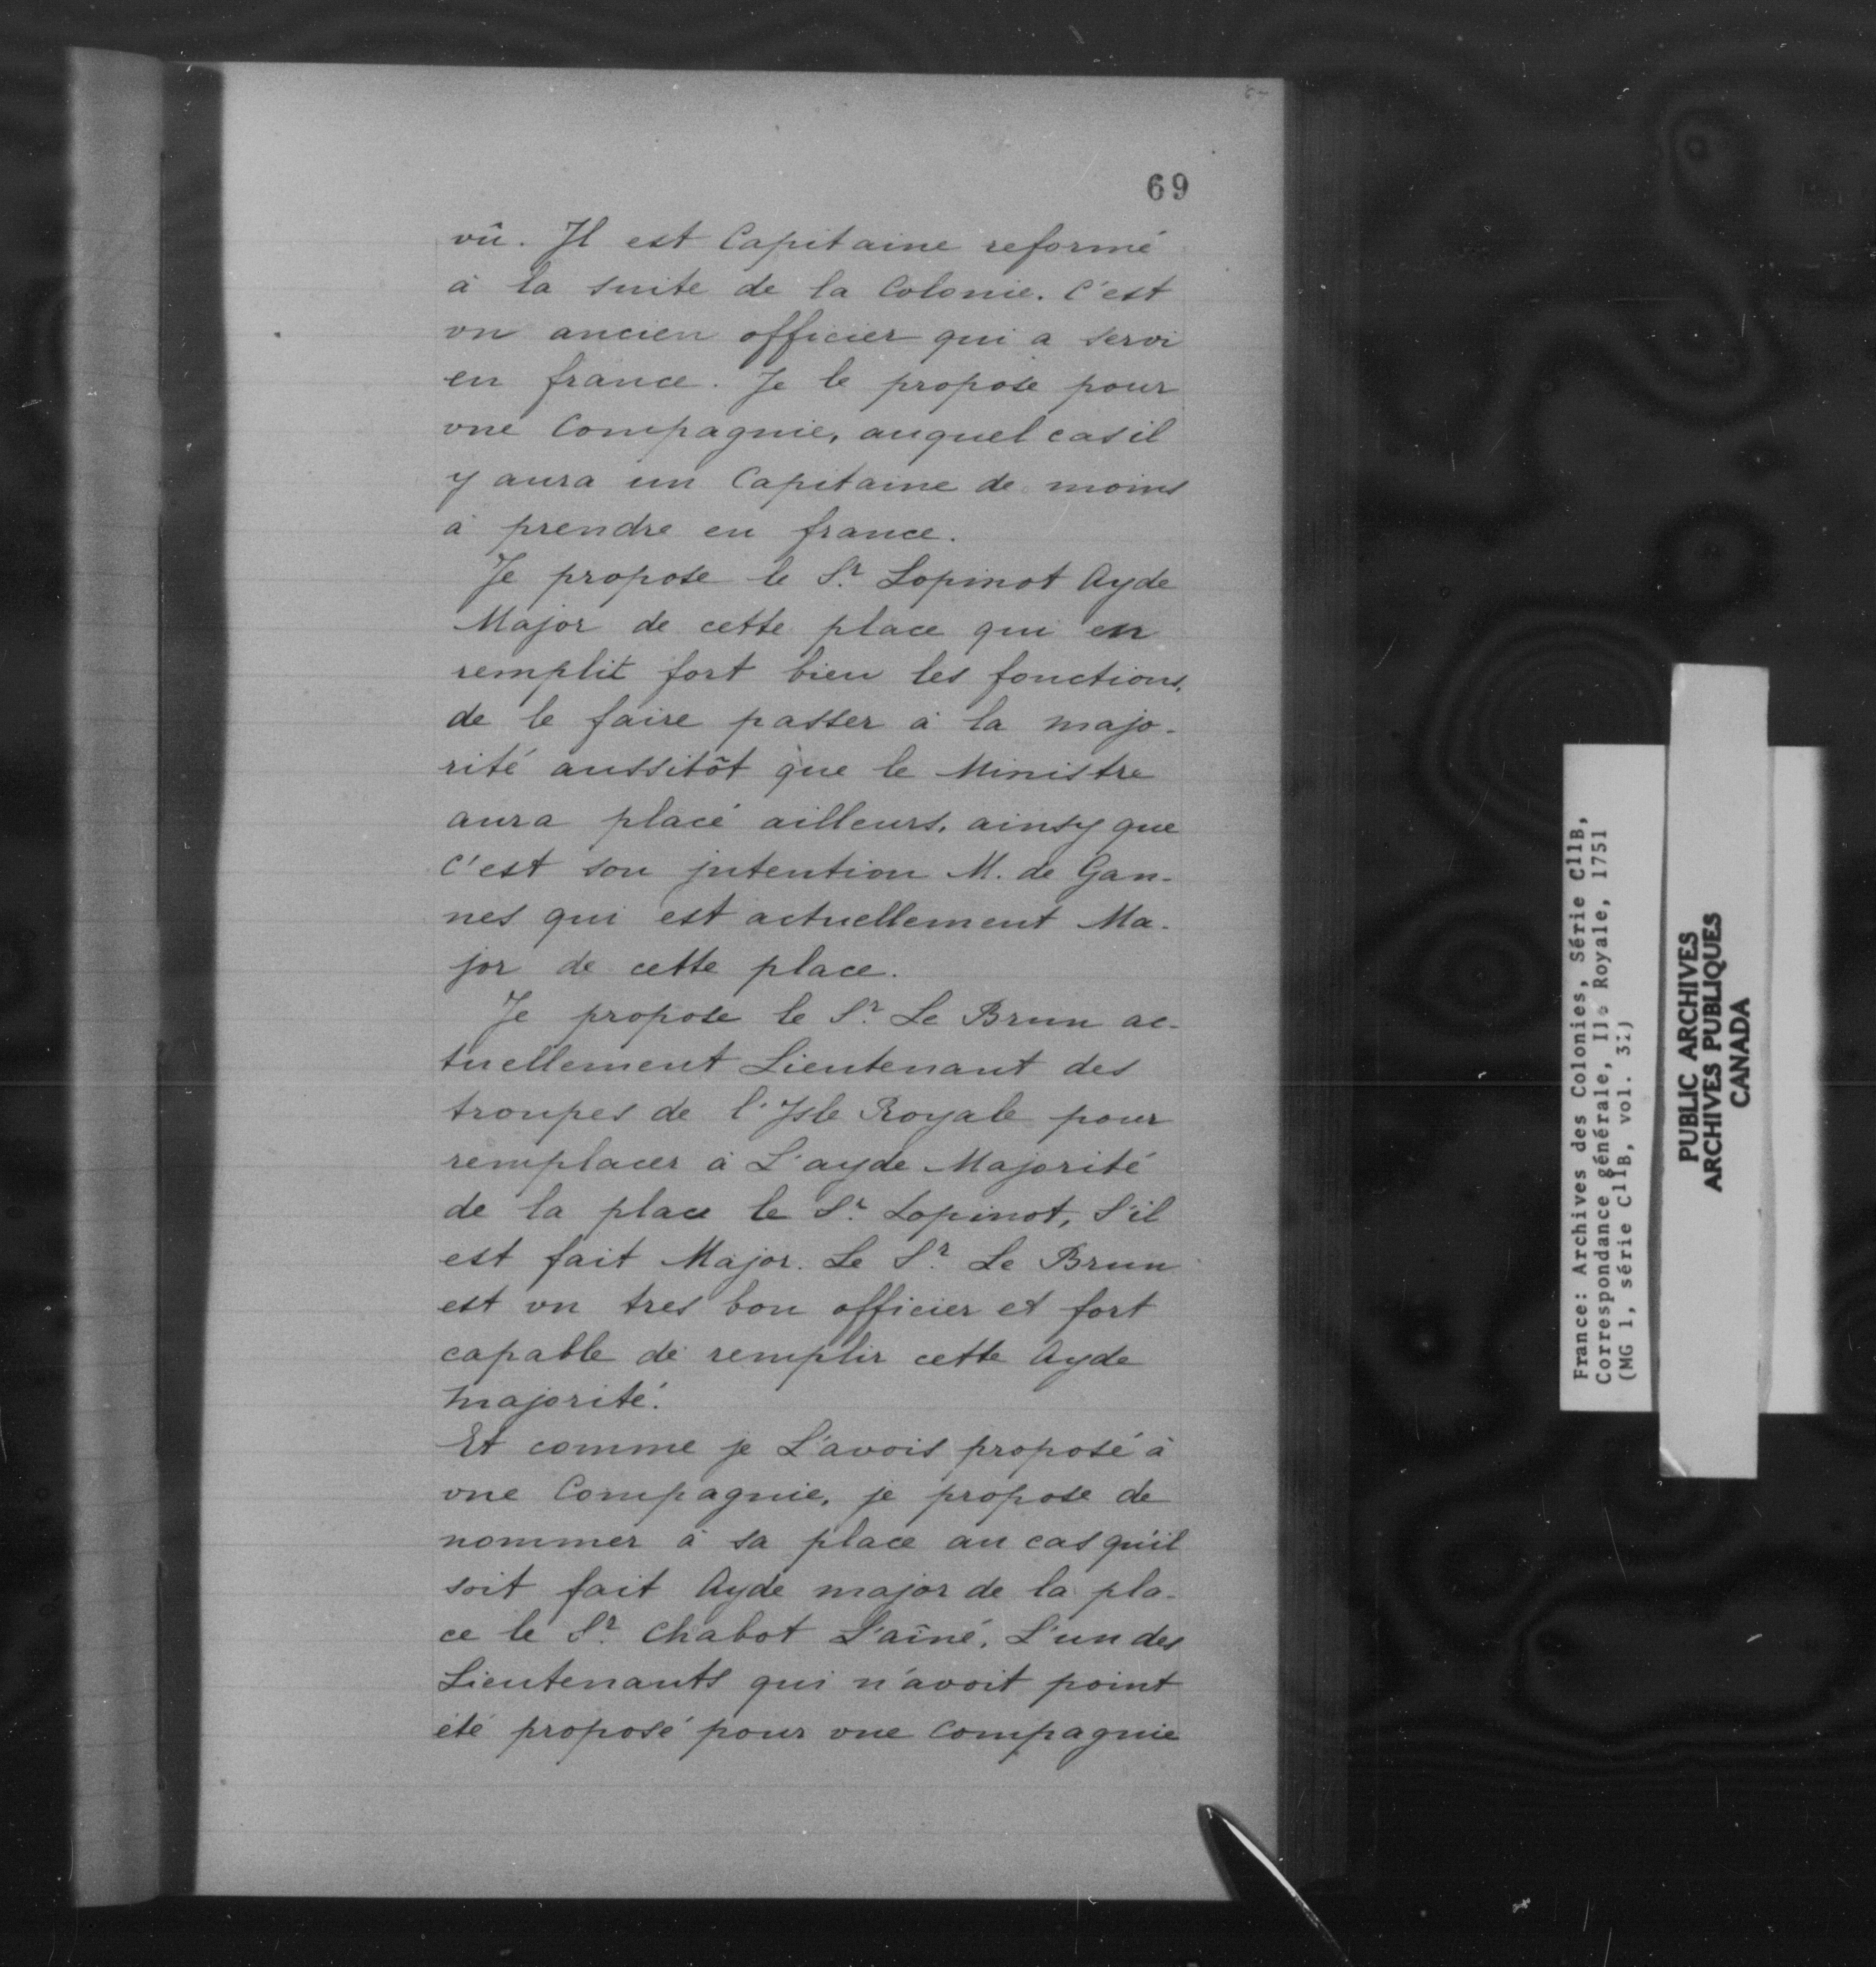 69
vû. Il est Capitaine reformé
à la suite de la Colonie. C'est
vn ancien officier qui a servi
en france. Je le propose pour
vne Compagnie, auquel cas il
y aura un Capitaine de moins
à prendre en france.
Je propose le Sr. Lopinot Ayde
Major de cette place qui en
remplit fort bien les fonctions,
de le faire passer à la majo-
rité aussitôt que le Ministre
aura placé ailleurs, ainsy que
c'est son jntention M. de Gan-
nes qui est actuellement Ma-
jor de cette place.
Je propose le Sr. Le Brun ac-
tuellement Lieutenant des
troupes de l'Jsle Royale pour
remplacer à L'ayde Majorité
de la place le Sr. Lopinot, S'il
est fait Major. Le Sr. Le Brun
est vn tres bon officier et fort
capable de remplir cette Ayde
majorité.
Et comme je L'avois proposé à
vne Compagnie, je propose de
nommer à sa place au cas qu'il
soit fait Ayde major de la pla-
ce le Sr. Chabot L'aîné, L'un des
Lieutenants qui n'avoit point
été proposé pour vne Compagnie
France: Archives des Colonies, Série C11B,
Correspondance générale, Ile Royale, 1751
(MG 1, série C11B, vol.
PUBLIC ARCHIVES
ARCHIVES PUBLIQUES
CANADA